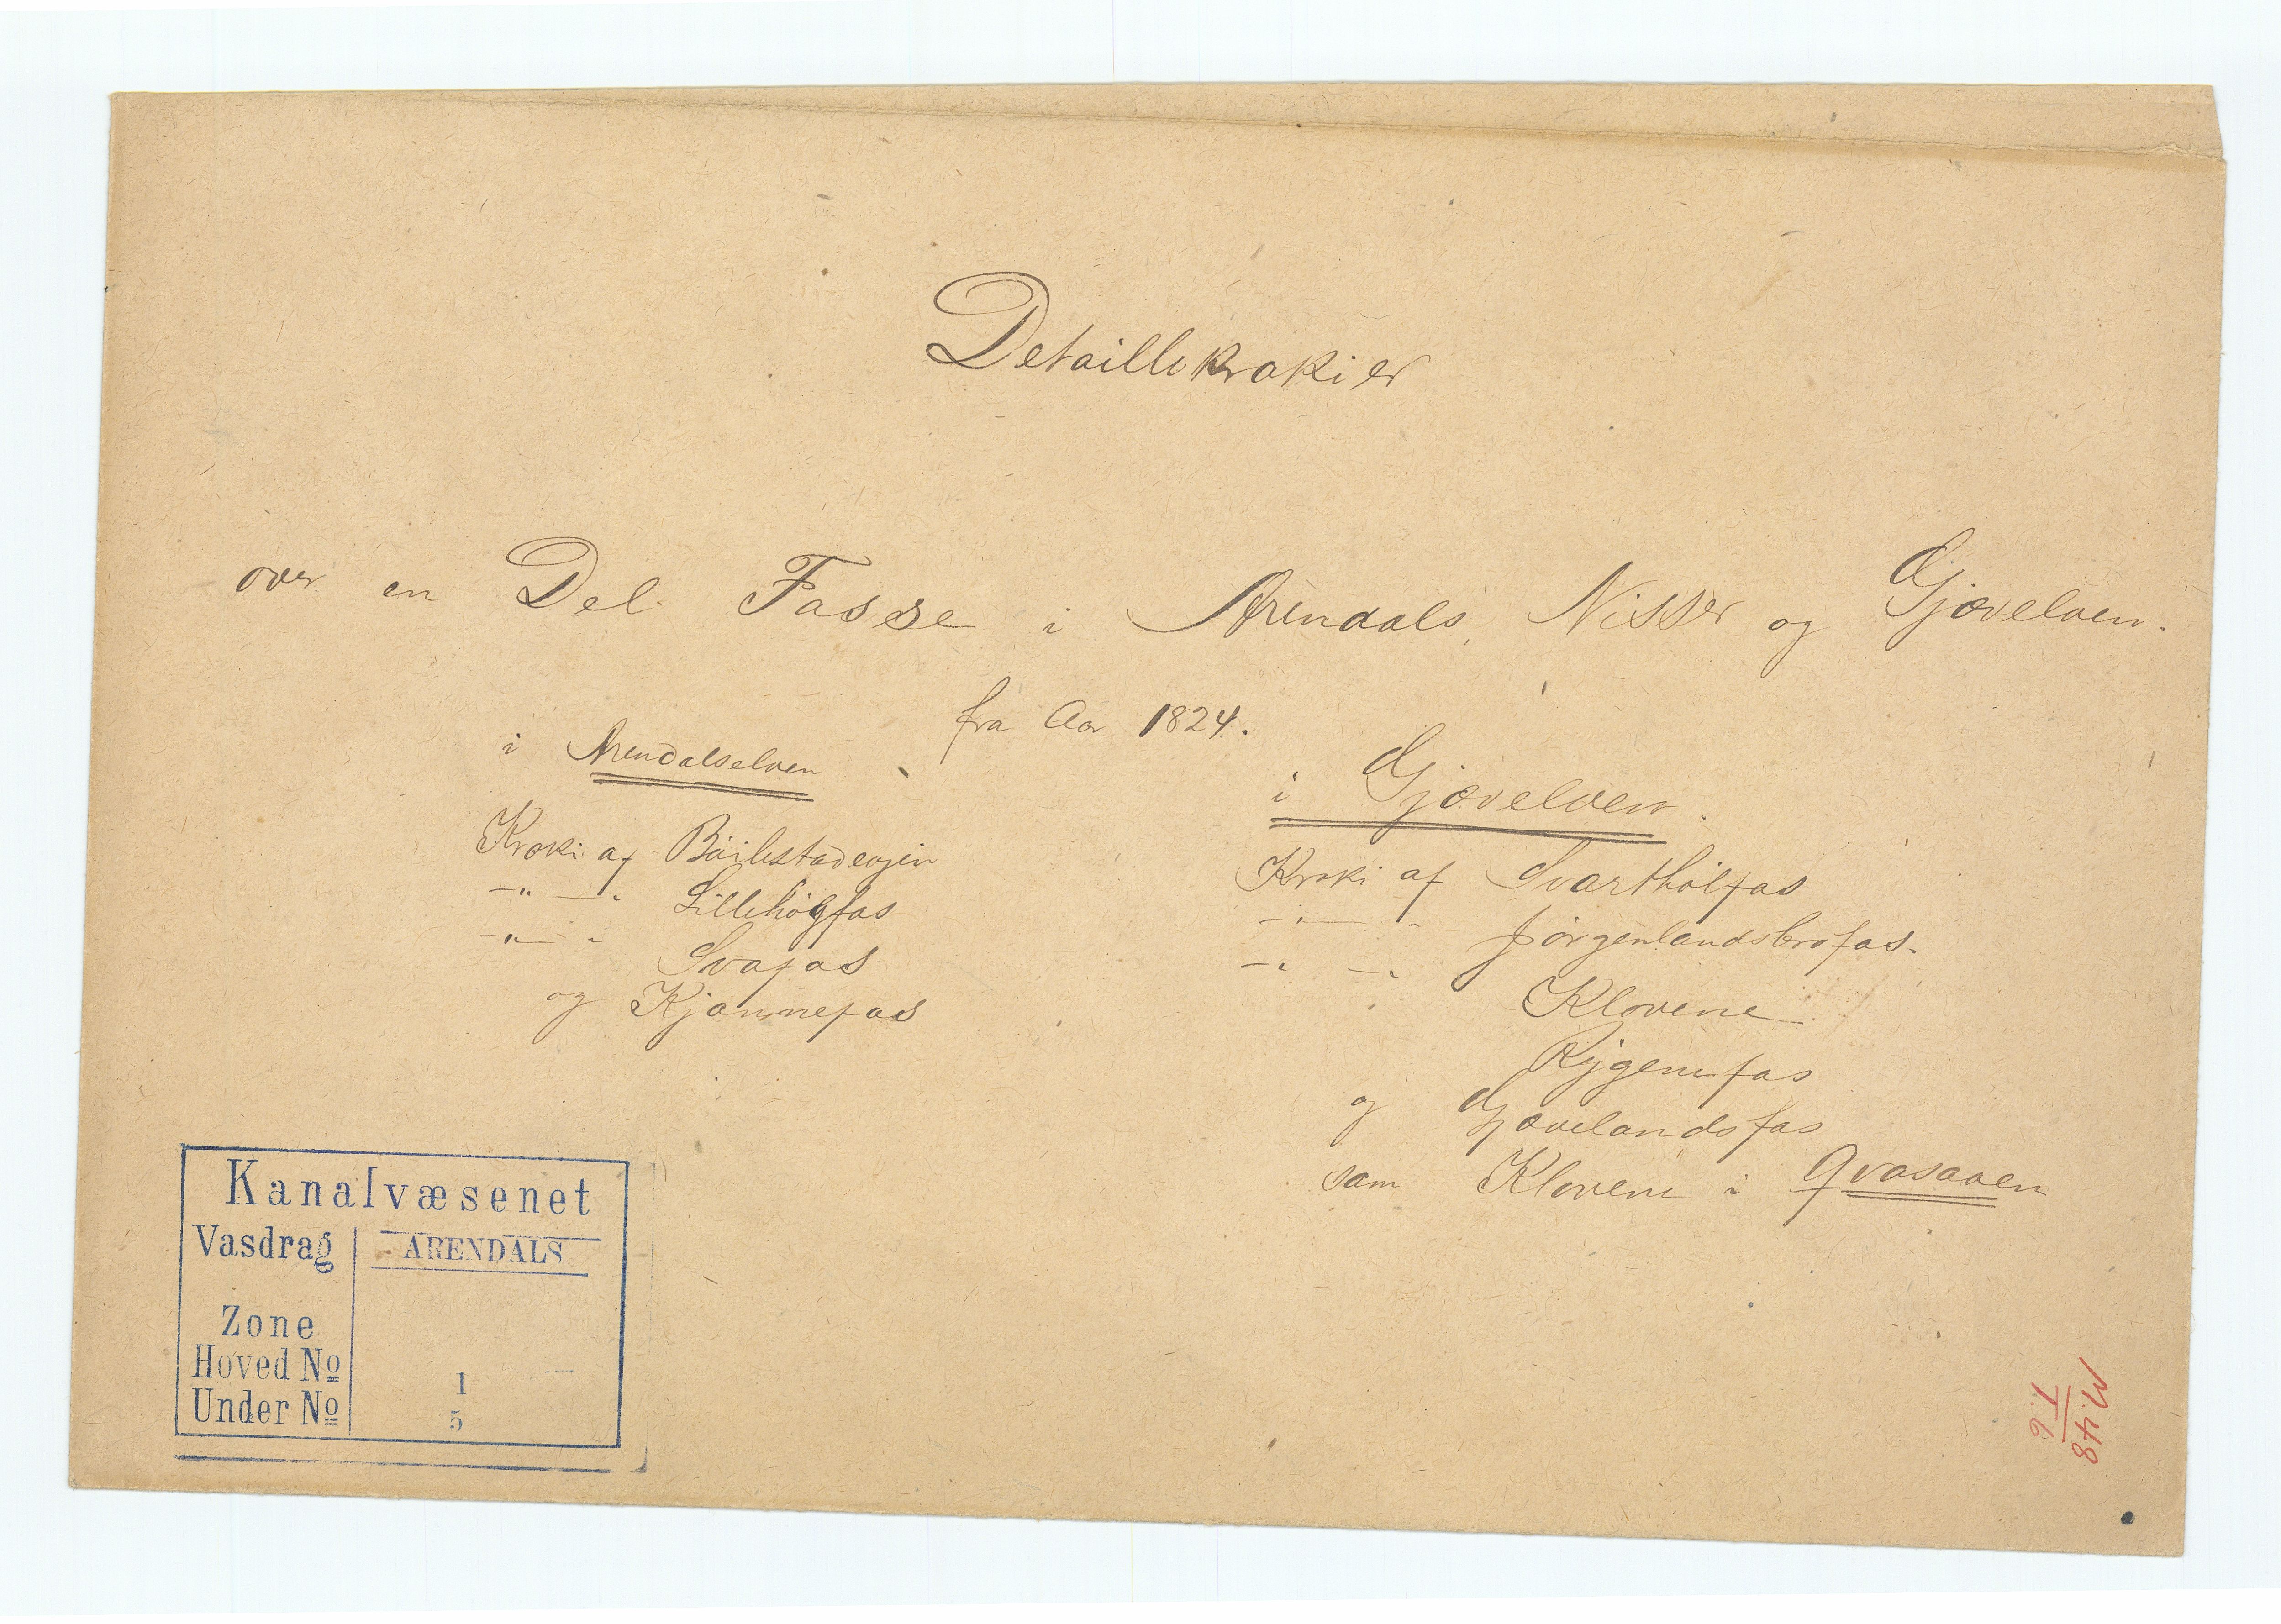 Detaillekrokier
over en Del Fosse i Arendals, Nisser og Gjøvelven.
fra Aar 1824.
i Arendalselven
Kroki af Böilestadevjen
-"- " Lillehölfos
-"- " Svafos
og Kjönnefos
i Gjøvelven.
Kroki af Svarthölfos
-"- " Jörgenlandsbrofos.
-"- " Klovene
Rygenefos
og Gjøvelandsfos
som Klovene i Qvasaaen
Kanalvæsenet
Vasdrag ARENDALS
Zone
Hoved No 1
Under No 5
M. 48
T. 6